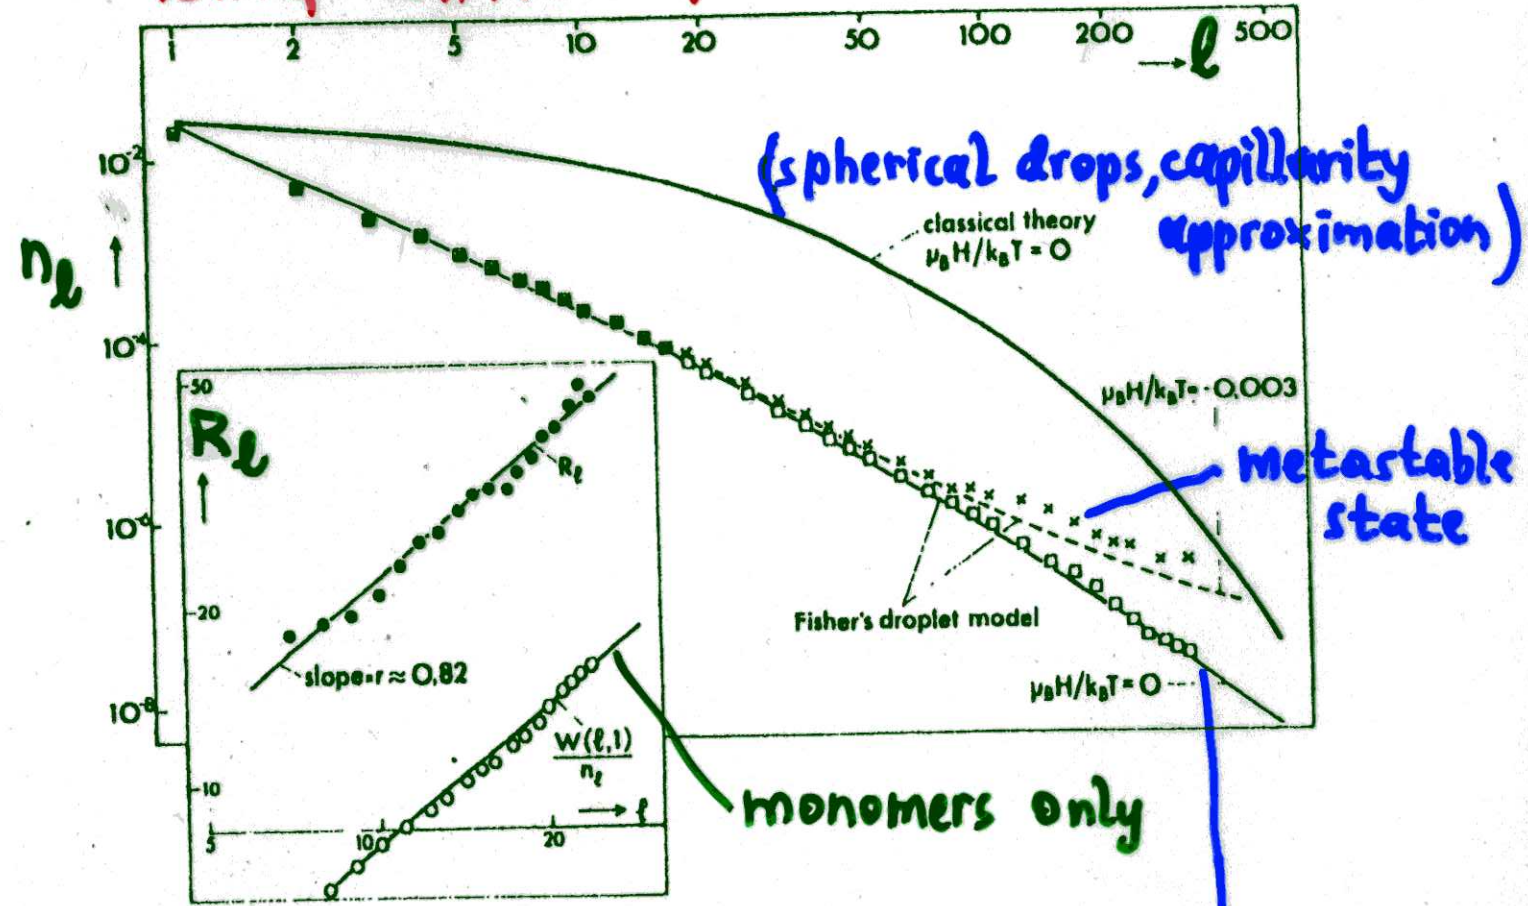 1 2 5 10 20 50 100 200 500
→ℓ
10⁻²
(spherical drops, capillarity
approximation)
classical theory
μ_B H/k_B T = 0
n_ℓ ↑
10⁻⁴
μ_B H/k_B T = -0.003
metastable
state
10⁻⁶
Fisher's droplet model
μ_B H/k_B T = 0
10⁻⁸
50
R_ℓ
↑
R_ℓ
20
slope=r≈0,82
W(ℓ,1)
n_ℓ
10
→ ℓ
5 10 20
monomers only